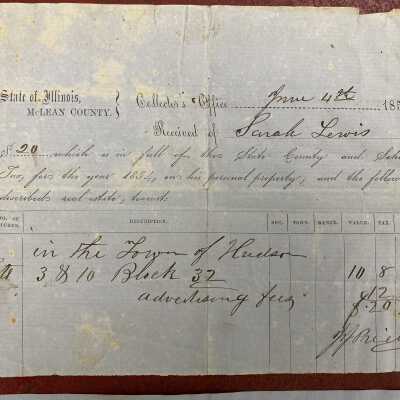 State of Illinois,
McLEAN COUNTY.
Collector's Office June 4th 185
Received of Sarah Lewis
$ .20 which is in full of the State County and Scho
Tax, for the year 1854, on his personal property, and the follow
described real estate, to-wit:
NO. OF DESCRIPTION. SEC. TOWN. RANGE. VALUE. TAX.
in the Town of Hudson
3 & 10 Block 32 10 8
advertising fees 12
.20